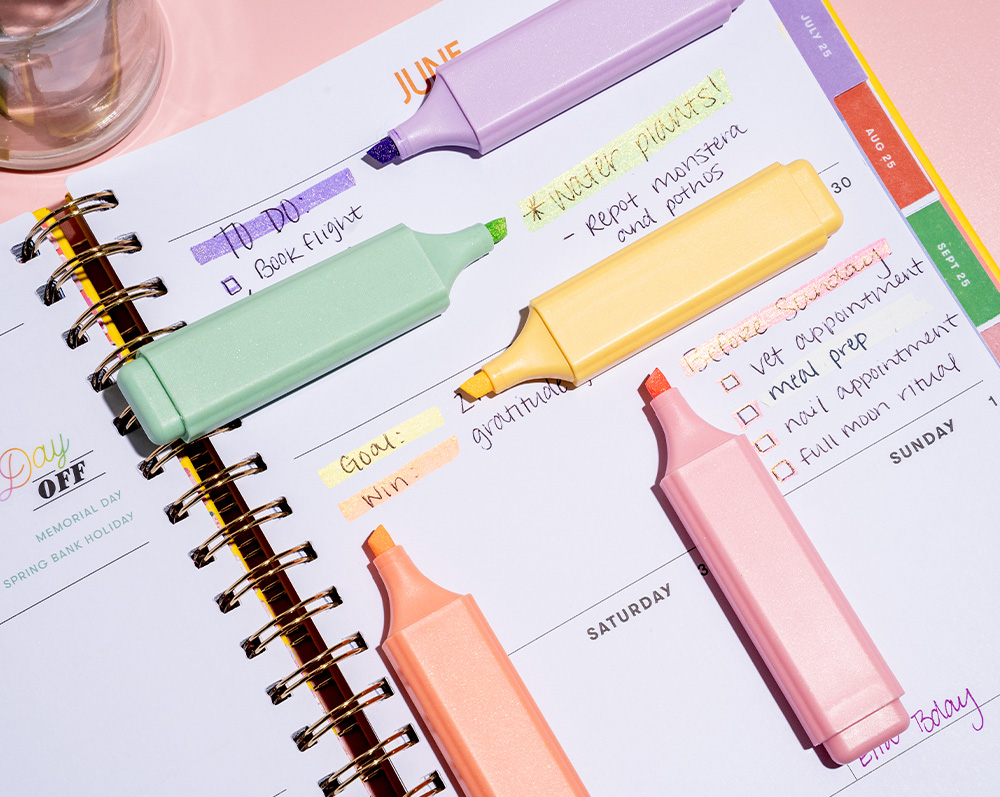 JUNE
TO DO:
Book flight
* Water plants!
- Repot monstera
and pothos
30
Goal:
Win:
gratitude
Before Sunday
vet appointment
meal prep
nail appointment
full moon ritual
SATURDAY
SUNDAY
1
Bday
Day
OFF
MEMORIAL DAY
SPRING BANK HOLIDAY
JULY 25
AUG 25
SEPT 25